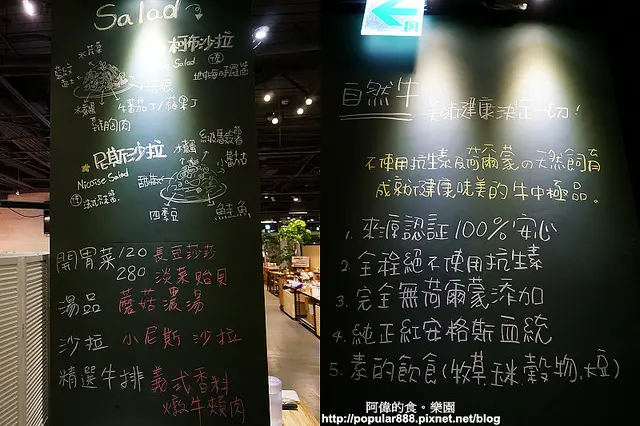 Salad
柯布沙拉
Salad
水煮蛋
牛番茄丁/蘋果丁
雞胸肉
尼斯沙拉
Nicoise Salad
四季豆
鮭魚
開胃菜 120 長豆莎莎
280 淡菜貽貝
湯品 蘑菇濃湯
沙拉 小尼斯沙拉
精選牛排 義式香料
燉牛頰肉
自然牛
美味健康決定一切!
不使用抗生素及荷爾蒙の天然飼育
成就健康味美的牛中極品。
1. 來源認証100%安心
2. 全程絕不使用抗生素
3. 完全無荷爾蒙添加
4. 純正紅安格斯血統
5. 素的飲食(牧草.玉米.穀物.大豆)
阿偉的食。樂園
http://popular888.pixnet.net/blog